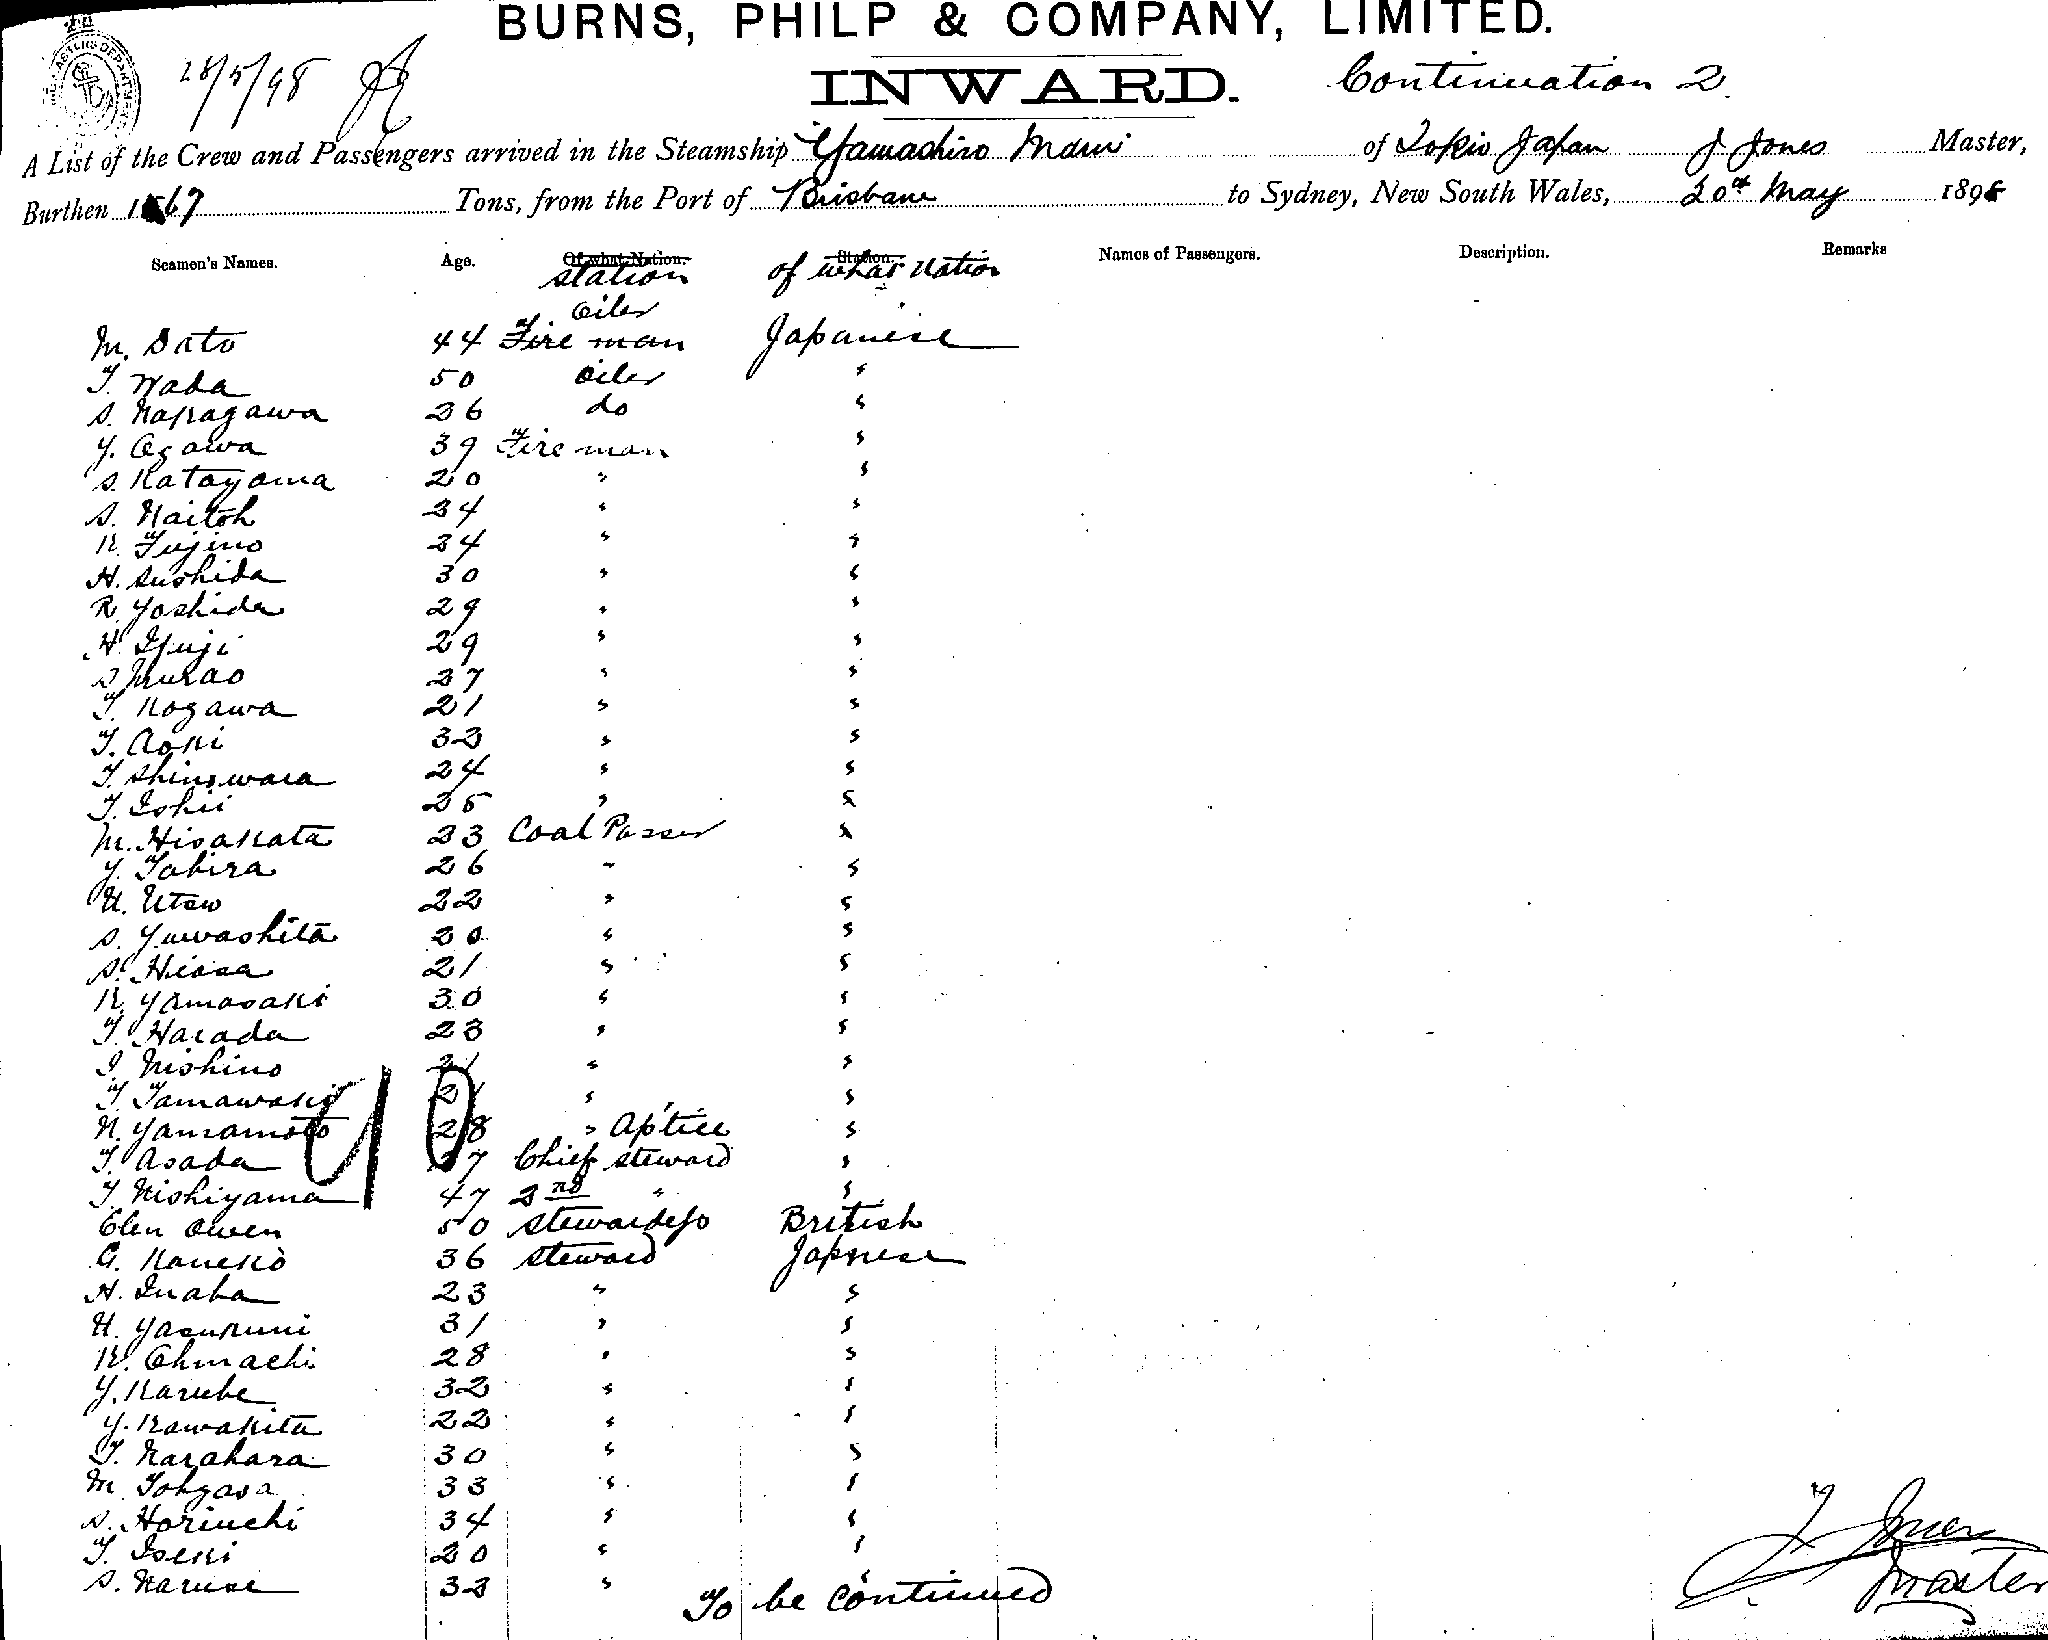 BURNS, PHILP & COMPANY, LIMITED.
28/5/98
INWARD. Continuation 2.
A List of the Crew and Passengers arrived in the Steamship Yamashiro Maru of Tokio Japan J Jones Master,
Burthen Tons, from the Port of Brisbane to Sydney, New South Wales, 20th May 1898
Seamen's Names. Age. Of what Nation. Station. Names of Passengers. Description. Remarks
station of what Nation
Oiler
M. Sato 44 Fire man Japanese
T. Wada 50 Oiler "
S. Nakagawa 26 do "
Y. Ogawa 39 Fire man "
S. Katayama 20 " "
S. Naitoh 24 " "
K. Fujino 24 " "
H. Sushida 30 " "
R. Yoshida 29 " "
H. Ifuji 29 " "
S. Murao 27 " "
T. Kogawa 21 " "
T. Aoki 32 " "
T. Shinowara 24 " "
T. Ishii 25 " "
M. Hisakata 23 Coal Passer "
Y. Tabira 26 " "
U. Utsu 22 " "
S. Yuwashita 20 " "
S. Hiosa 21 " "
K. Yamasaki 30 " "
T. Harada 23 " "
I. Nishino 21 " "
T. Tamawaki 21 " "
N. Yamamoto 28 " Ap'tice "
T. Asada 37 Chief steward "
T. Nishiyama 47 2nd " "
40
Elen Owen 50 Stewardess British
G. Kaneko 36 Steward Japnese
H. Inaba 23 " "
U. Yasukuni 31 " "
K. Ohmachi 28 " "
Y. Karube 32 " "
Y. Kawakita 22 " "
T. Narahara 30 " "
M. Tohgasa 33 " "
S. Horiuchi 34 " "
T. Iseki 20 " "
S. Naruse 32 " "
To be continued
J. Jones
Master